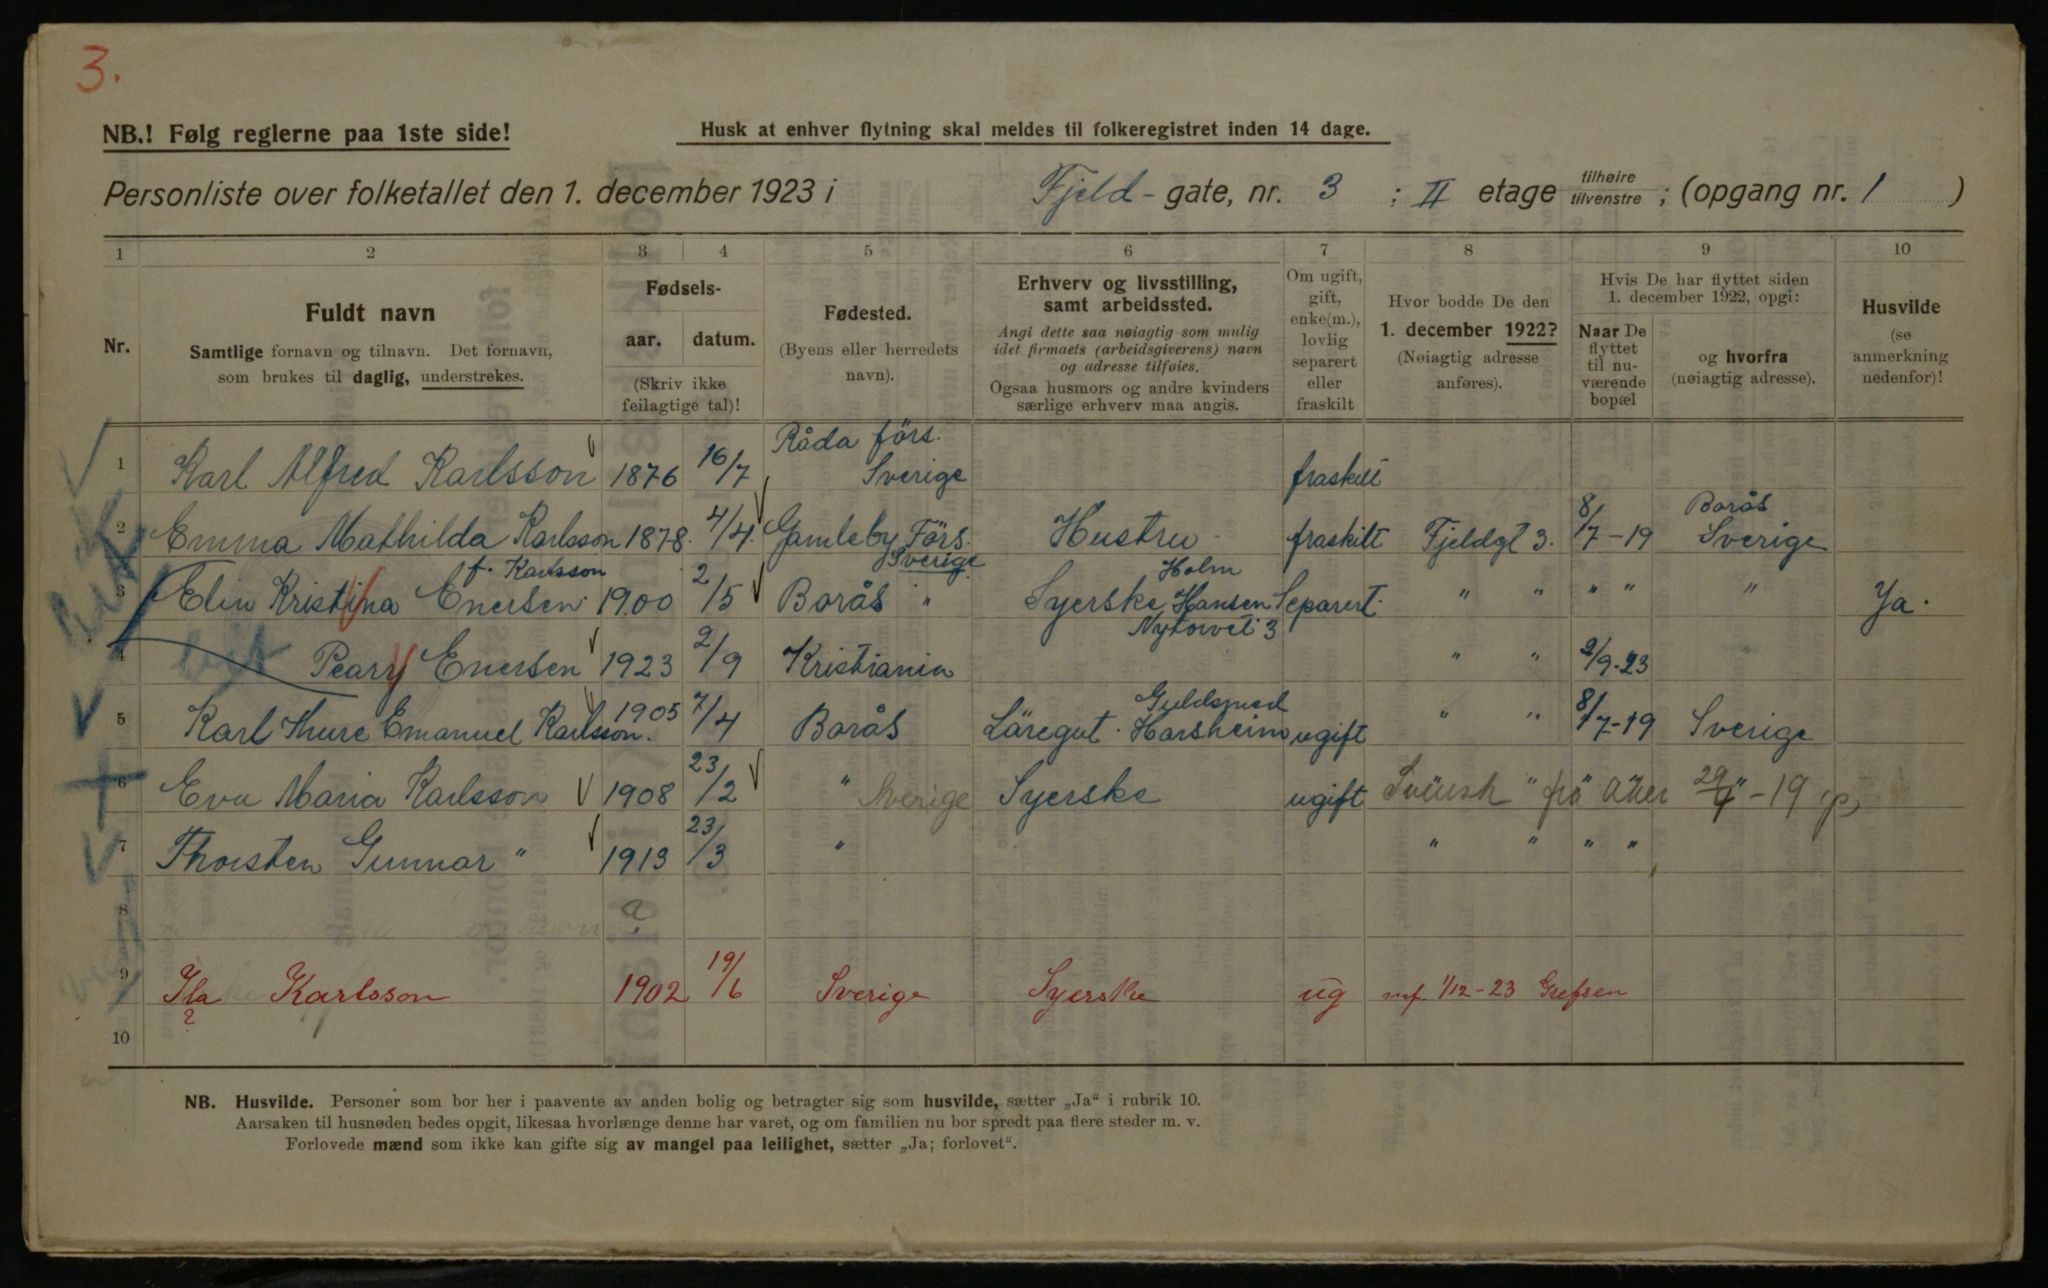 3.
NB.! Følg reglerne paa 1ste side!
Husk at enhver flytning skal meldes til folkeregistret inden 14 dage.
Personliste over folketallet den 1. december 1923 i Fjeld - gate, nr. 3 : II etage tilhøire tilvenstre ; (opgang nr. 1 )
1 2 3 4 5 6 7 8 9 10
Nr.
Fuldt navn
Samtlige fornavn og tilnavn. Det fornavn,
som brukes til daglig, understrekes.
Fødsels-
aar. datum.
(Skriv ikke
feilagtige tal)!
Fødested.
(Byens eller herredets
navn).
Erhverv og livsstilling,
samt arbeidssted.
Angi dette saa nøiagtig som mulig
idet firmaets (arbeidsgiverens) navn
og adresse tilføies.
Ogsaa husmors og andre kvinders
særlige erhverv maa angis.
Om ugift,
gift,
enke(m.),
lovlig
separert
eller
fraskilt
Hvor bodde De den
1. december 1922?
(Nøiagtig adresse
anføres).
Hvis De har flyttet siden
1. december 1922, opgi:
Naar De
flyttet
til nu-
værende
bopæl
og hvorfra
(nøiagtig adresse).
Husvilde
(se
anmerkning
nedenfor)!
1 Karl Alfred Karlsson 1876 16/7 Råda förs. Sverige fraskilt
2 Emma Mathilda Karlsson 1878. 4/4. Gamleby Förs. Sverige Hustru fraskilt Fjeldgt 3. 8/7-19 Borås Sverige
3 Elin Kristina Enersen f. Karlsson 1900 2/5 Borås " Syerske Holm Hansen Nytorvet 3 Separert. " " " " " Ja.
4 Peary Enersen 1923 2/9 Kristiania " " 2/9-23
5 Karl Thure Emanuel Karlsson. 1905 7/4 Borås Läregut. Guldsmed Harsheim ugift " " 8/7-19 Sverige
6 Eva Maria Karlsson 1908 23/2 " Sverige Syerske ugift " " - 19
7 Thorsten Gunnar " 1913 23/3 " " " " "
8 ?
9 Karlsson 1902 19/6 Sverige Syerske ug mf. 1/12-23 Grefsen
?
10
NB. Husvilde. Personer som bor her i paavente av anden bolig og betragter sig som husvilde, sætter „Ja“ i rubrik 10.
Aarsaken til husnøden bedes opgit, likesaa hvorlænge denne har varet, og om familien nu bor spredt paa flere steder m. v.
Forlovede mænd som ikke kan gifte sig av mangel paa leilighet, sætter „Ja; forlovet“.